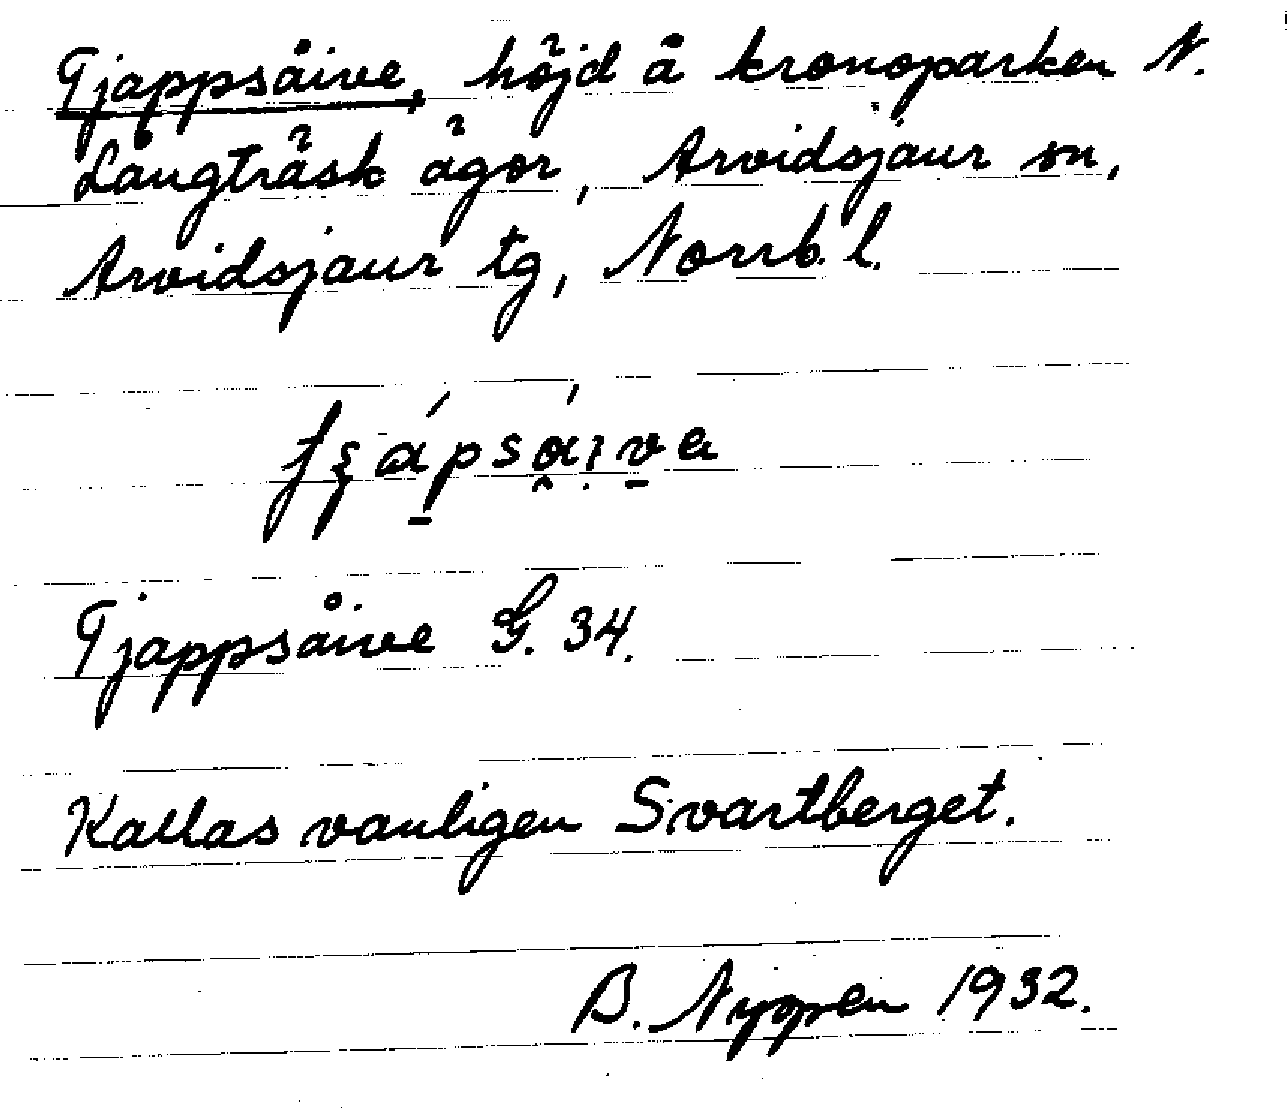 Tjappsåive, höjd å kronoparken N.
Långträsk ägor, Arvidsjaur sn,
Arvidsjaur tg, Norrb. l.
Tjappsåive G. 34.
Kallas vanligen Svartberget.
B. Nyppen 1932.